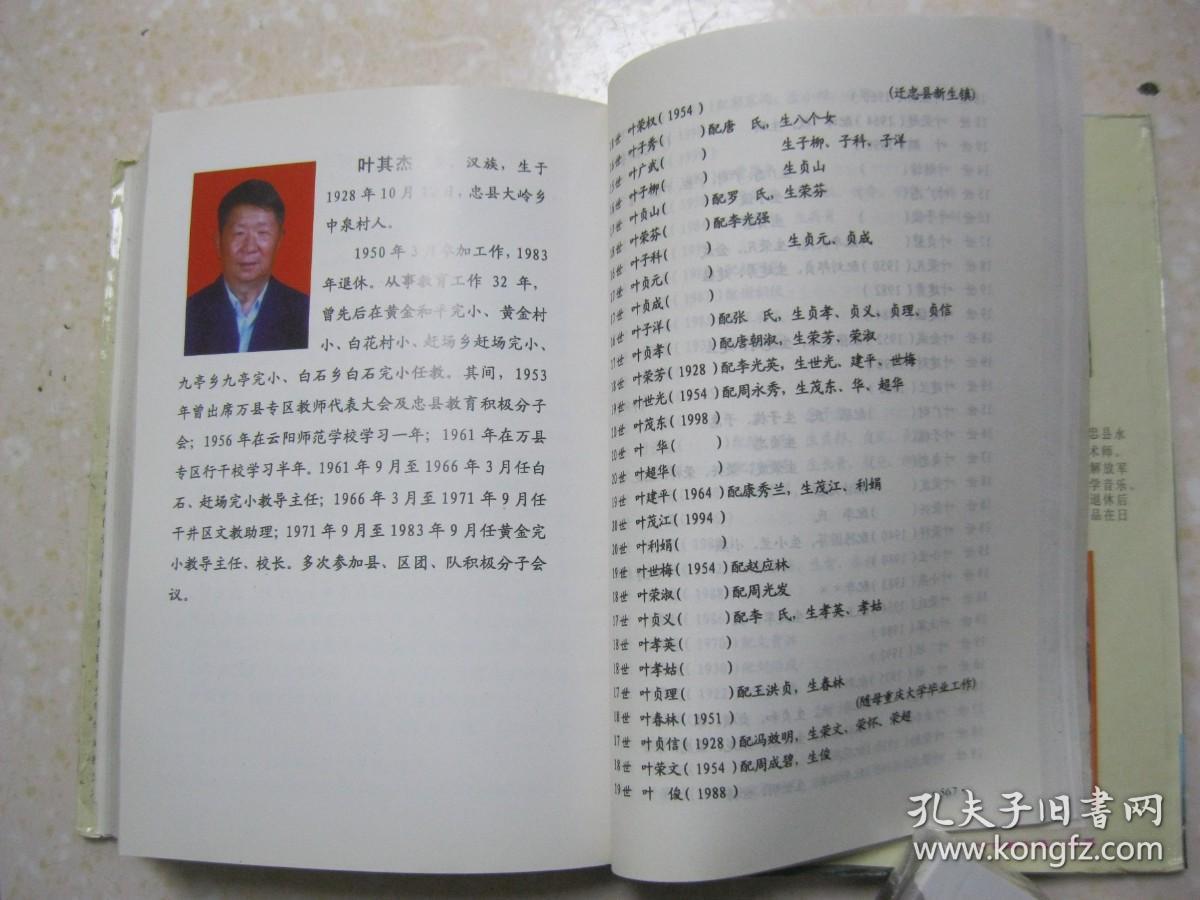 叶其杰 汉族，生于
1928 年 10 月 日，忠县大岭乡
中泉村人。
1950 年 3 月参加工作，1983
年退休。从事教育工作 32 年，
曾先后在黄金和平完小、黄金村
小、白花村小、赶场乡赶场完小、
九亭乡九亭完小、白石乡白石完小任教。其间，1953
年曾出席万县专区教师代表大会及忠县教育积极分子
会；1956 年在云阳师范学校学习一年；1961 年在万县
专区行干校学习半年。1961 年 9 月至 1966 年 3 月任白
石、赶场完小教导主任；1966 年 3 月至 1971 年 9 月任
干井区文教助理；1971 年 9 月至 1983 年 9 月任黄金完
小教导主任、校长。多次参加县、区团、队积极分子会
议。
(迁忠县新生镇)
18世 叶荣权(1954)
16世 叶子秀( )配唐 氏，生八个女
15世 叶广武( ) 生子柳、子科、子洋
16世 叶子柳( ) 生贞山
17世 叶贞山( )配罗 氏，生荣芬
18世 叶荣芬( )配李光强
16世 叶子科( ) 生贞元、贞成
17世 叶贞元( )
17世 叶贞成( )
16世 叶子洋( )配张 氏，生贞孝、贞义、贞理、贞信
17世 叶贞孝( )配唐朝淑，生荣芳、荣淑
18世 叶荣芳(1928)配李光英，生世光、建平、世梅
19世 叶世光(1954)配周永秀，生茂东、华、超华
20世 叶茂东(1998)
20世 叶 华( )
20世 叶超华( )
19世 叶建平(1964)配康秀兰，生茂江、利娟
20世 叶茂江(1994)
20世 叶利娟( )
19世 叶世梅(1954)配赵应林
18世 叶荣淑( )配周光发
17世 叶贞义( )配李 氏，生孝英、孝姑
18世 叶孝英( )
18世 叶孝姑( )
17世 叶贞理( )配王洪贞，生春林
(随母重庆大学毕业工作)
18世 叶春林(1951)
17世 叶贞信(1928)配冯效明，生荣文、荣怀、荣超
18世 叶荣文(1954)配周成碧，生俊
19世 叶 俊(1988)
567
忠县永
术师。
解放军
学音乐。
退休后
品在日
孔夫子旧书网
www.kongfz.com